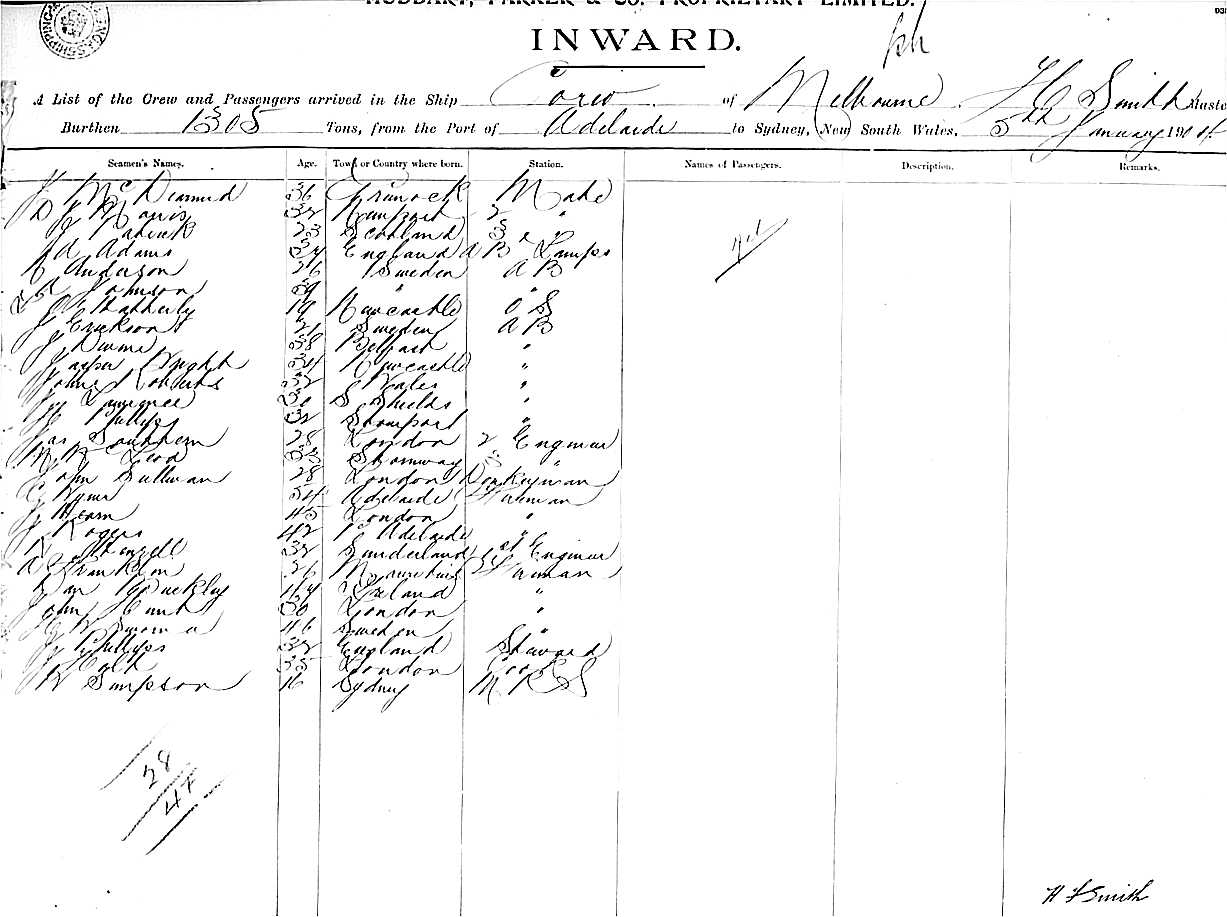 HUDDART, PARKER & CO. PROPRIETARY LIMITED.
INWARD.
A List of the Crew and Passengers arrived in the Ship Corio of Melbourne, Smith Master
Burthen 1305 Tons, from the Port of Adelaide to Sydney, New South Wales, 5th January 190
Seamen's Names. Age. Town or Country where born. Station. Names of Passengers. Description. Remarks.
J McDiarmid 36 Greenock Mate
32 2 "
23 Scotland 3 "
J A Adams 34 England A B & Lamps
Anderson 26 Sweden A B
Johnson 39 " "
19 Newcastle O S
J Erickson 21 Sweden A B
J 38 Belfast "
Jasper Wright 34 Newcastle "
John Roberts 32 Wales "
Lawrence 30 S Shields "
Phillips 32 "
Jas Southern 28 London 2 Engineer
Leod 33 Stornway 3 "
John Sullivan 28 London Donkeyman
C 54 Adelaide Fireman
J Hearn 45 London "
J Rogers 42 Pt Adelaide "
32 Sunderland 1st Engineer
A Franklin 26 Mauritius Fireman
Dan Buckley 44 Ireland "
John Hunt 30 London "
46 Sweden "
Jy Phillips 32 England Steward
J Holt 35 London Cook
W Simpson 16 Sydney M R S
28
47
H F Smith